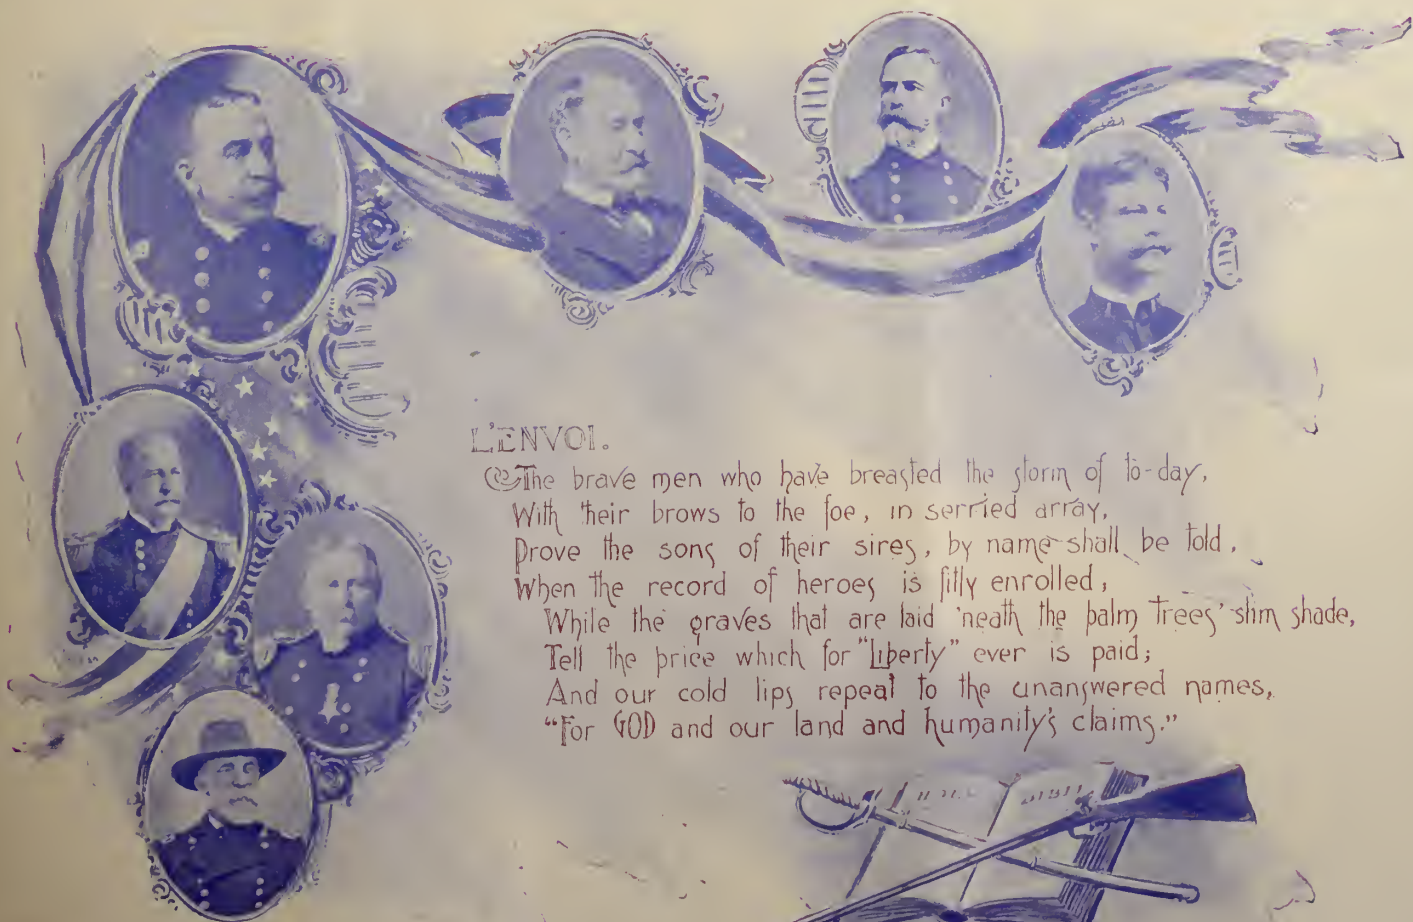 L'ENVOI.
The brave men who have breasted the storm of to-day,
With their brows to the foe, in serried array,
Prove the sons of their sires, by name shall be told,
When the record of heroes is fitly enrolled,
While the graves that are laid 'neath the palm trees' slim shade,
Tell the price which for "Liberty" ever is paid;
And our cold lips repeat to the unanswered names,
"For GOD and our land and humanity's claims."